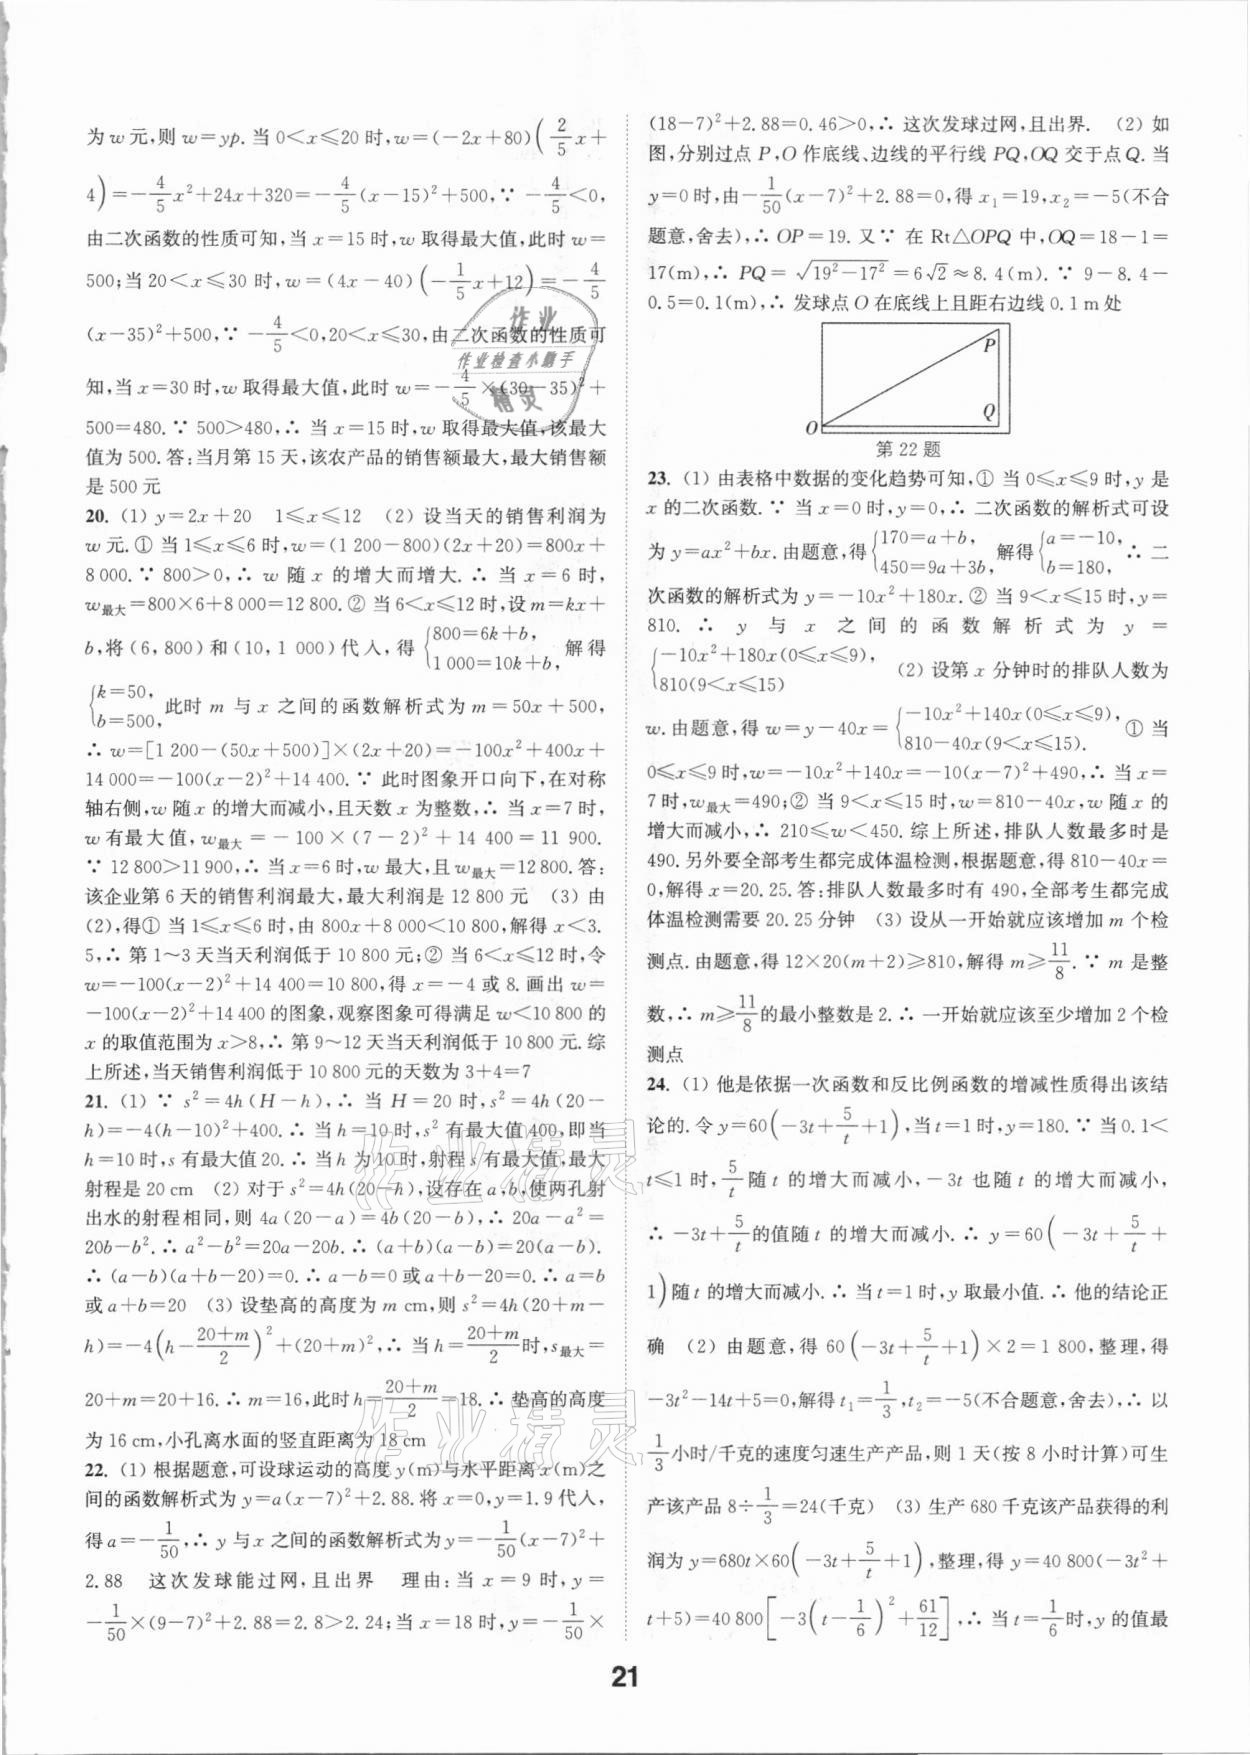 为w元,则w=yp.当0<x≤20时,w=(-2x+80)(2/5x+
4)=-4/5x²+24x+320=-4/5(x-15)²+500,∵ -4/5<0,
由二次函数的性质可知,当x=15时,w取得最大值,此时w=
500;当20<x≤30时,w=(4x-40)(-1/5x+12)=-4/5
(x-35)²+500,∵ -4/5<0,20<x≤30,由二次函数的性质可
知,当x=30时,w取得最大值,此时w=-4/5×(30-35)²+
500=480.∵ 500>480,∴ 当x=15时,w取得最大值,该最大
值为500.答:当月第15天,该农产品的销售额最大,最大销售额
是500元
20. (1) y=2x+20 1≤x≤12 (2) 设当天的销售利润为
w元.① 当1≤x≤6时,w=(1 200-800)(2x+20)=800x+
8 000.∵ 800>0,∴ w随x的增大而增大.∴ 当x=6时,
w最大=800×6+8 000=12 800.② 当6<x≤12时,设m=kx+
b,将(6,800)和(10,1 000)代入,得{800=6k+b, 1 000=10k+b, 解得
{k=50, b=500, 此时m与x之间的函数解析式为m=50x+500,
∴ w=[1 200-(50x+500)]×(2x+20)=-100x²+400x+
14 000=-100(x-2)²+14 400.∵ 此时图象开口向下,在对称
轴右侧,w随x的增大而减小,且天数x为整数,∴ 当x=7时,
w有最大值,w最大=-100×(7-2)²+14 400=11 900.
∵ 12 800>11 900,∴ 当x=6时,w最大,且w最大=12 800.答:
该企业第6天的销售利润最大,最大利润是12 800元 (3) 由
(2),得① 当1≤x≤6时,由800x+8 000<10 800,解得x<3.
5,∴ 第1~3天当天利润低于10 800元;② 当6<x≤12时,令
w=-100(x-2)²+14 400=10 800,得x=-4或8.画出w=
-100(x-2)²+14 400的图象,观察图象可得满足w<10 800的
x的取值范围为x>8,∴ 第9~12天当天利润低于10 800元.综
上所述,当天销售利润低于10 800元的天数为3+4=7
21. (1) ∵ s²=4h(H-h),∴ 当H=20时,s²=4h(20-
h)=-4(h-10)²+400.∴ 当h=10时,s²有最大值400,即当
h=10时,s有最大值20.∴ 当h为10时,射程s有最大值,最大
射程是20 cm (2) 对于s²=4h(20-h),设存在a,b,使两孔射
出水的射程相同,则4a(20-a)=4b(20-b),∴ 20a-a²=
20b-b².∴ a²-b²=20a-20b.∴ (a+b)(a-b)=20(a-b).
∴ (a-b)(a+b-20)=0.∴ a-b=0或a+b-20=0.∴ a=b
或a+b=20 (3) 设垫高的高度为m cm,则s²=4h(20+m-
h)=-4(h-(20+m)/2)²+(20+m)²,∴ 当h=(20+m)/2时,s最大=
20+m=20+16.∴ m=16,此时h=(20+m)/2=18.∴ 垫高的高度
为16 cm,小孔离水面的竖直距离为18 cm
22. (1) 根据题意,可设球运动的高度y(m)与水平距离x(m)之
间的函数解析式为y=a(x-7)²+2.88.将x=0,y=1.9代入,
得a=-1/50,∴ y与x之间的函数解析式为y=-1/50(x-7)²+
2.88 这次发球能过网,且出界 理由:当x=9时,y=
-1/50×(9-7)²+2.88=2.8>2.24;当x=18时,y=-1/50×
(18-7)²+2.88=0.46>0,∴ 这次发球过网,且出界. (2) 如
图,分别过点P,O作底线、边线的平行线PQ,OQ交于点Q.当
y=0时,由-1/50(x-7)²+2.88=0,得x₁=19,x₂=-5(不合
题意,舍去),∴ OP=19.又∵ 在Rt△OPQ中,OQ=18-1=
17(m),∴ PQ=√(19²-17²)=6√2≈8.4(m).∵ 9-8.4-
0.5=0.1(m),∴ 发球点O在底线上且距右边线0.1 m处
P
Q
O
第22题
23. (1) 由表格中数据的变化趋势可知,① 当0≤x≤9时,y是
x的二次函数.∵ 当x=0时,y=0,∴ 二次函数的解析式可设
为y=ax²+bx.由题意,得{170=a+b, 450=9a+3b, 解得{a=-10, b=180, ∴ 二
次函数的解析式为y=-10x²+180x.② 当9<x≤15时,y=
810.∴ y与x之间的函数解析式为y=
{-10x²+180x(0≤x≤9), 810(9<x≤15) (2) 设第x分钟时的排队人数为
w.由题意,得w=y-40x={-10x²+140x(0≤x≤9), 810-40x(9<x≤15). ① 当
0≤x≤9时,w=-10x²+140x=-10(x-7)²+490,∴ 当x=
7时,w最大=490;② 当9<x≤15时,w=810-40x,w随x的
增大而减小,∴ 210≤w<450.综上所述,排队人数最多时是
490.另外要全部考生都完成体温检测,根据题意,得810-40x=
0,解得x=20.25.答:排队人数最多时有490,全部考生都完成
体温检测需要20.25分钟 (3) 设从一开始就应该增加m个检
测点.由题意,得12×20(m+2)≥810,解得m≥11/8.∵ m是整
数,∴ m≥11/8的最小整数是2.∴ 一开始就应该至少增加2个检
测点
24. (1) 他是依据一次函数和反比例函数的增减性质得出该结
论的.令y=60(-3t+5/t+1),当t=1时,y=180.∵ 当0.1<
t≤1时,5/t随t的增大而减小,-3t也随t的增大而减小,
∴ -3t+5/t的值随t的增大而减小.∴ y=60(-3t+5/t+
1)随t的增大而减小.∴ 当t=1时,y取最小值.∴ 他的结论正
确 (2) 由题意,得60(-3t+5/t+1)×2=1 800,整理,得
-3t²-14t+5=0,解得t₁=1/3,t₂=-5(不合题意,舍去),∴ 以
1/3小时/千克的速度匀速生产产品,则1天(按8小时计算)可生
产该产品8÷1/3=24(千克) (3) 生产680千克该产品获得的利
润为y=680t×60(-3t+5/t+1),整理,得y=40 800(-3t²+
t+5)=40 800[-3(t-1/6)²+61/12],∴ 当t=1/6时,y的值最
21
作业
作业检查小助手
精灵
作业精灵
作业精灵